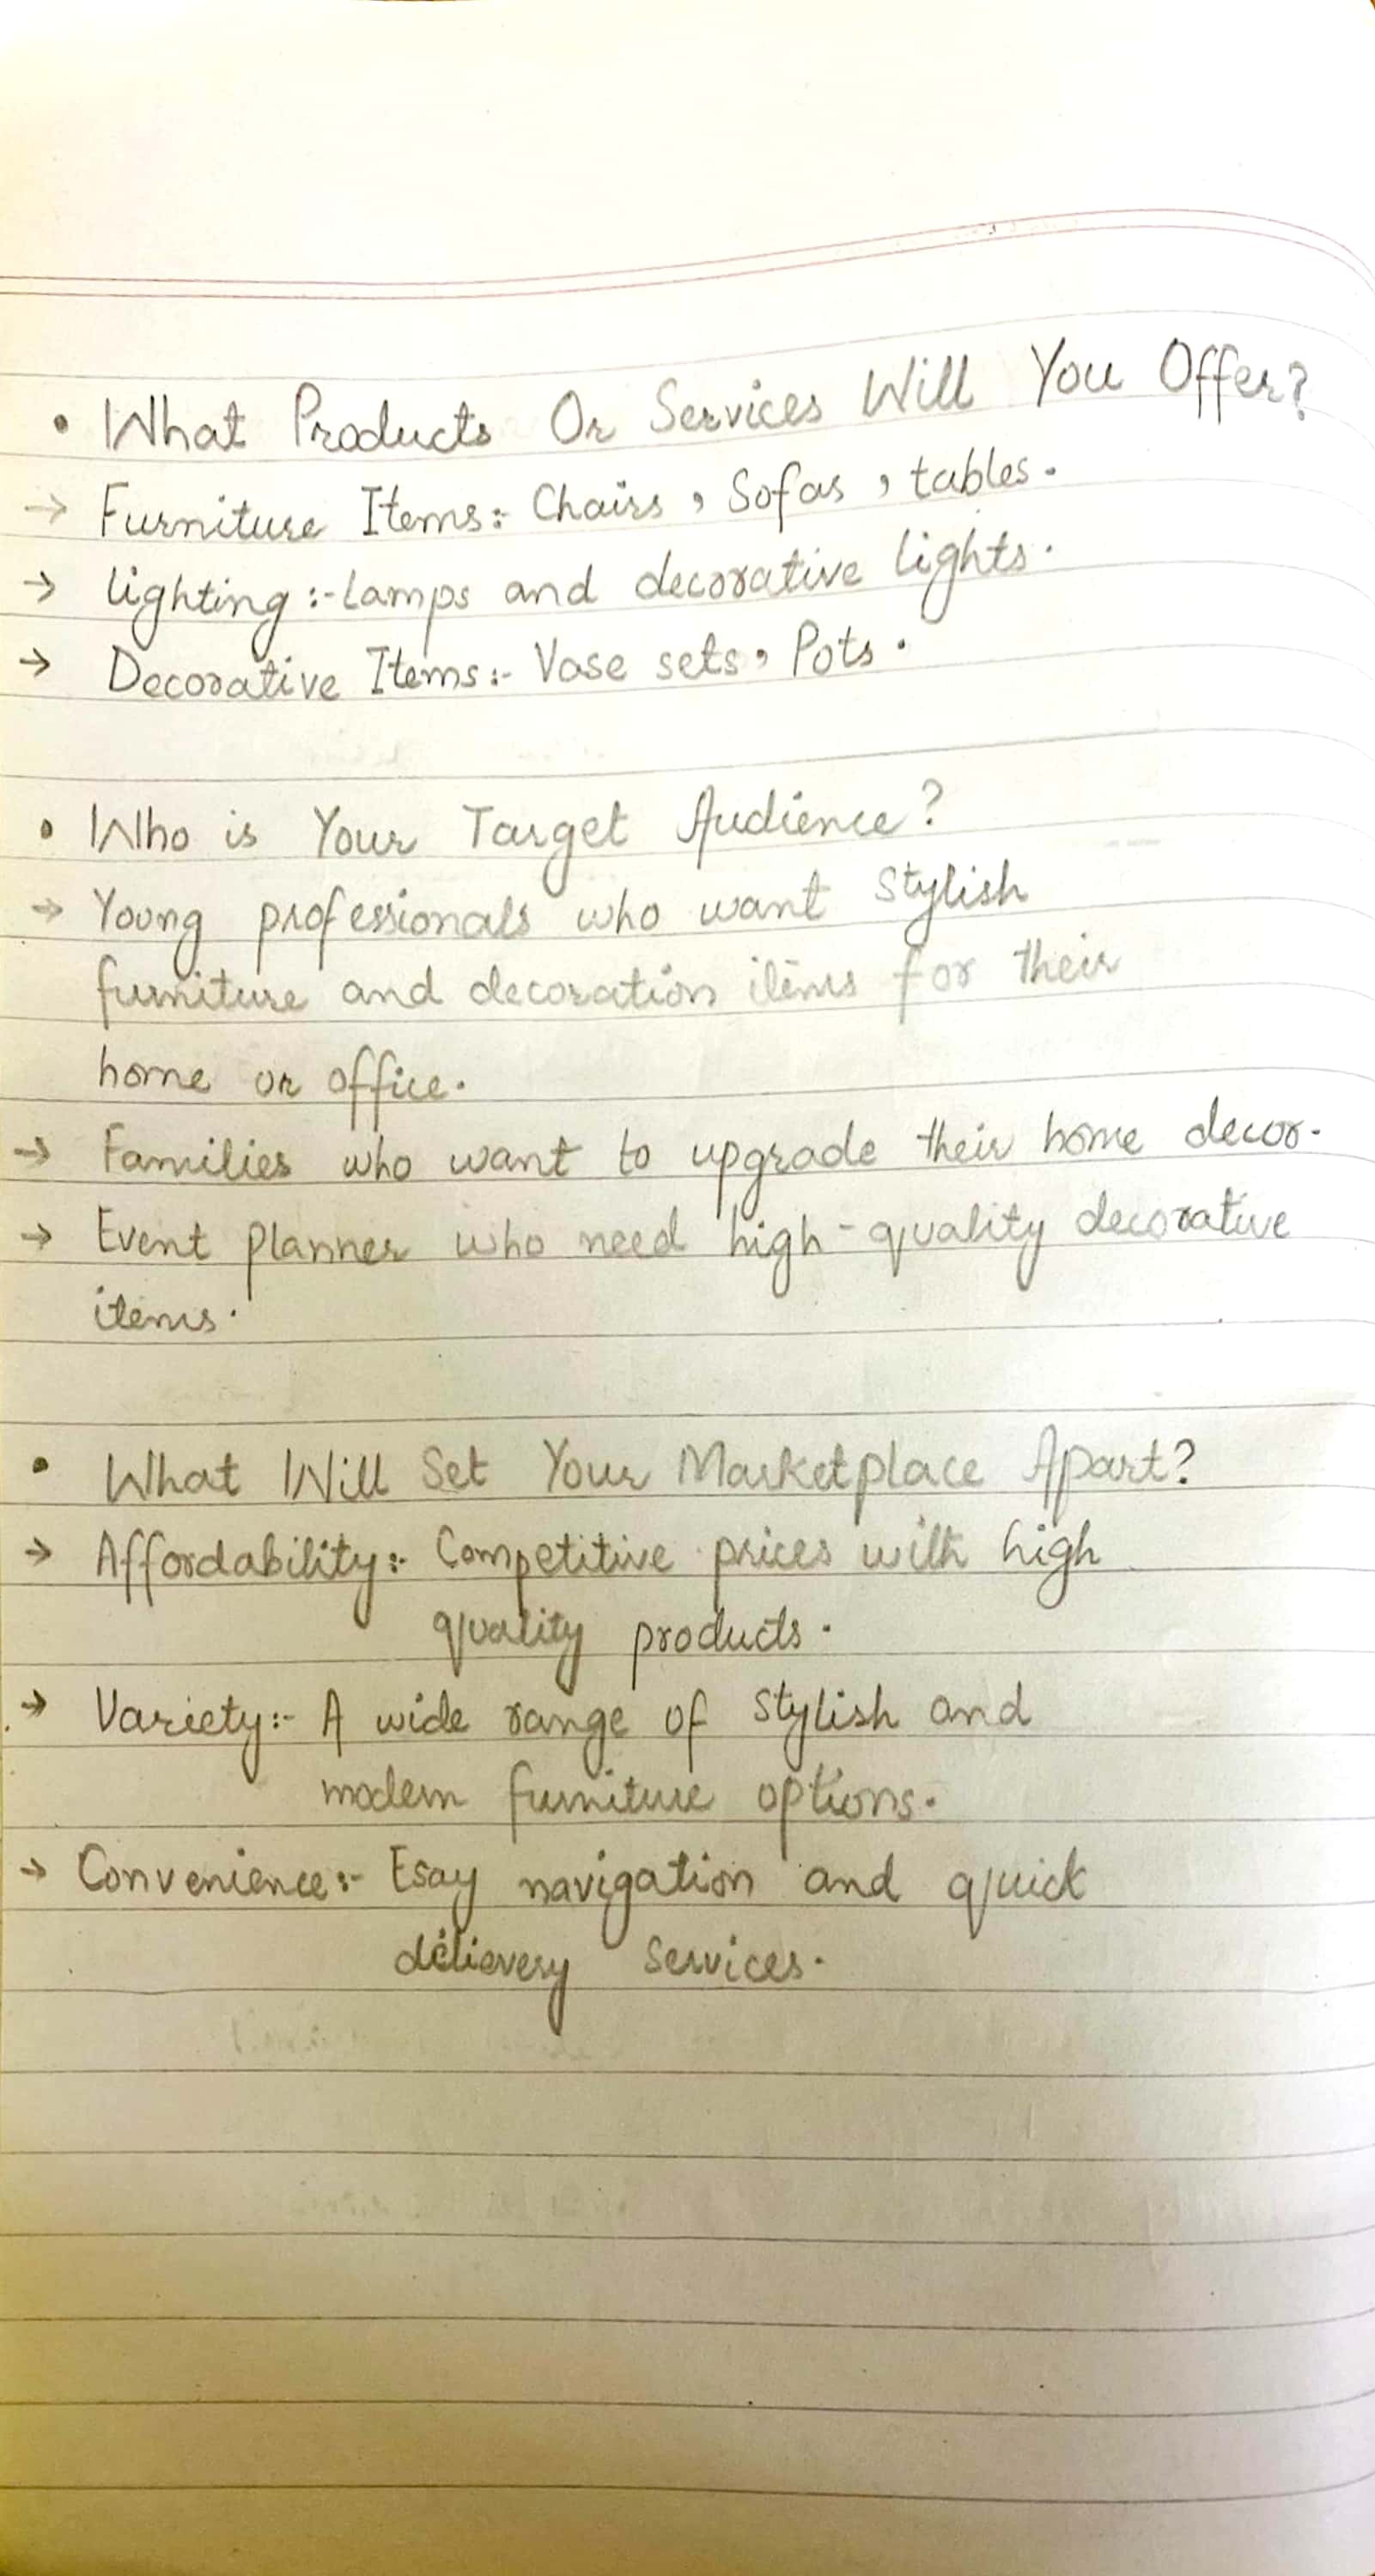 • What Products Or Services Will You Offer?
→ Furniture Items:- Chairs, Sofas, tables.
→ lighting:- lamps and decorative lights.
→ Decorative Items:- Vase sets, Pots.
• Who is Your Target Audience?
→ Young professionals who want stylish
furniture and decoration items for their
home or office.
→ Families who want to upgrade their home decor.
→ Event planner who need high-quality decorative
items.
• What Will Set Your Marketplace Apart?
→ Affordability:- Competitive prices with high
quality products.
→ Variety:- A wide range of stylish and
modern furniture options.
→ Convenience:- Esay navigation and quick
delievery services.